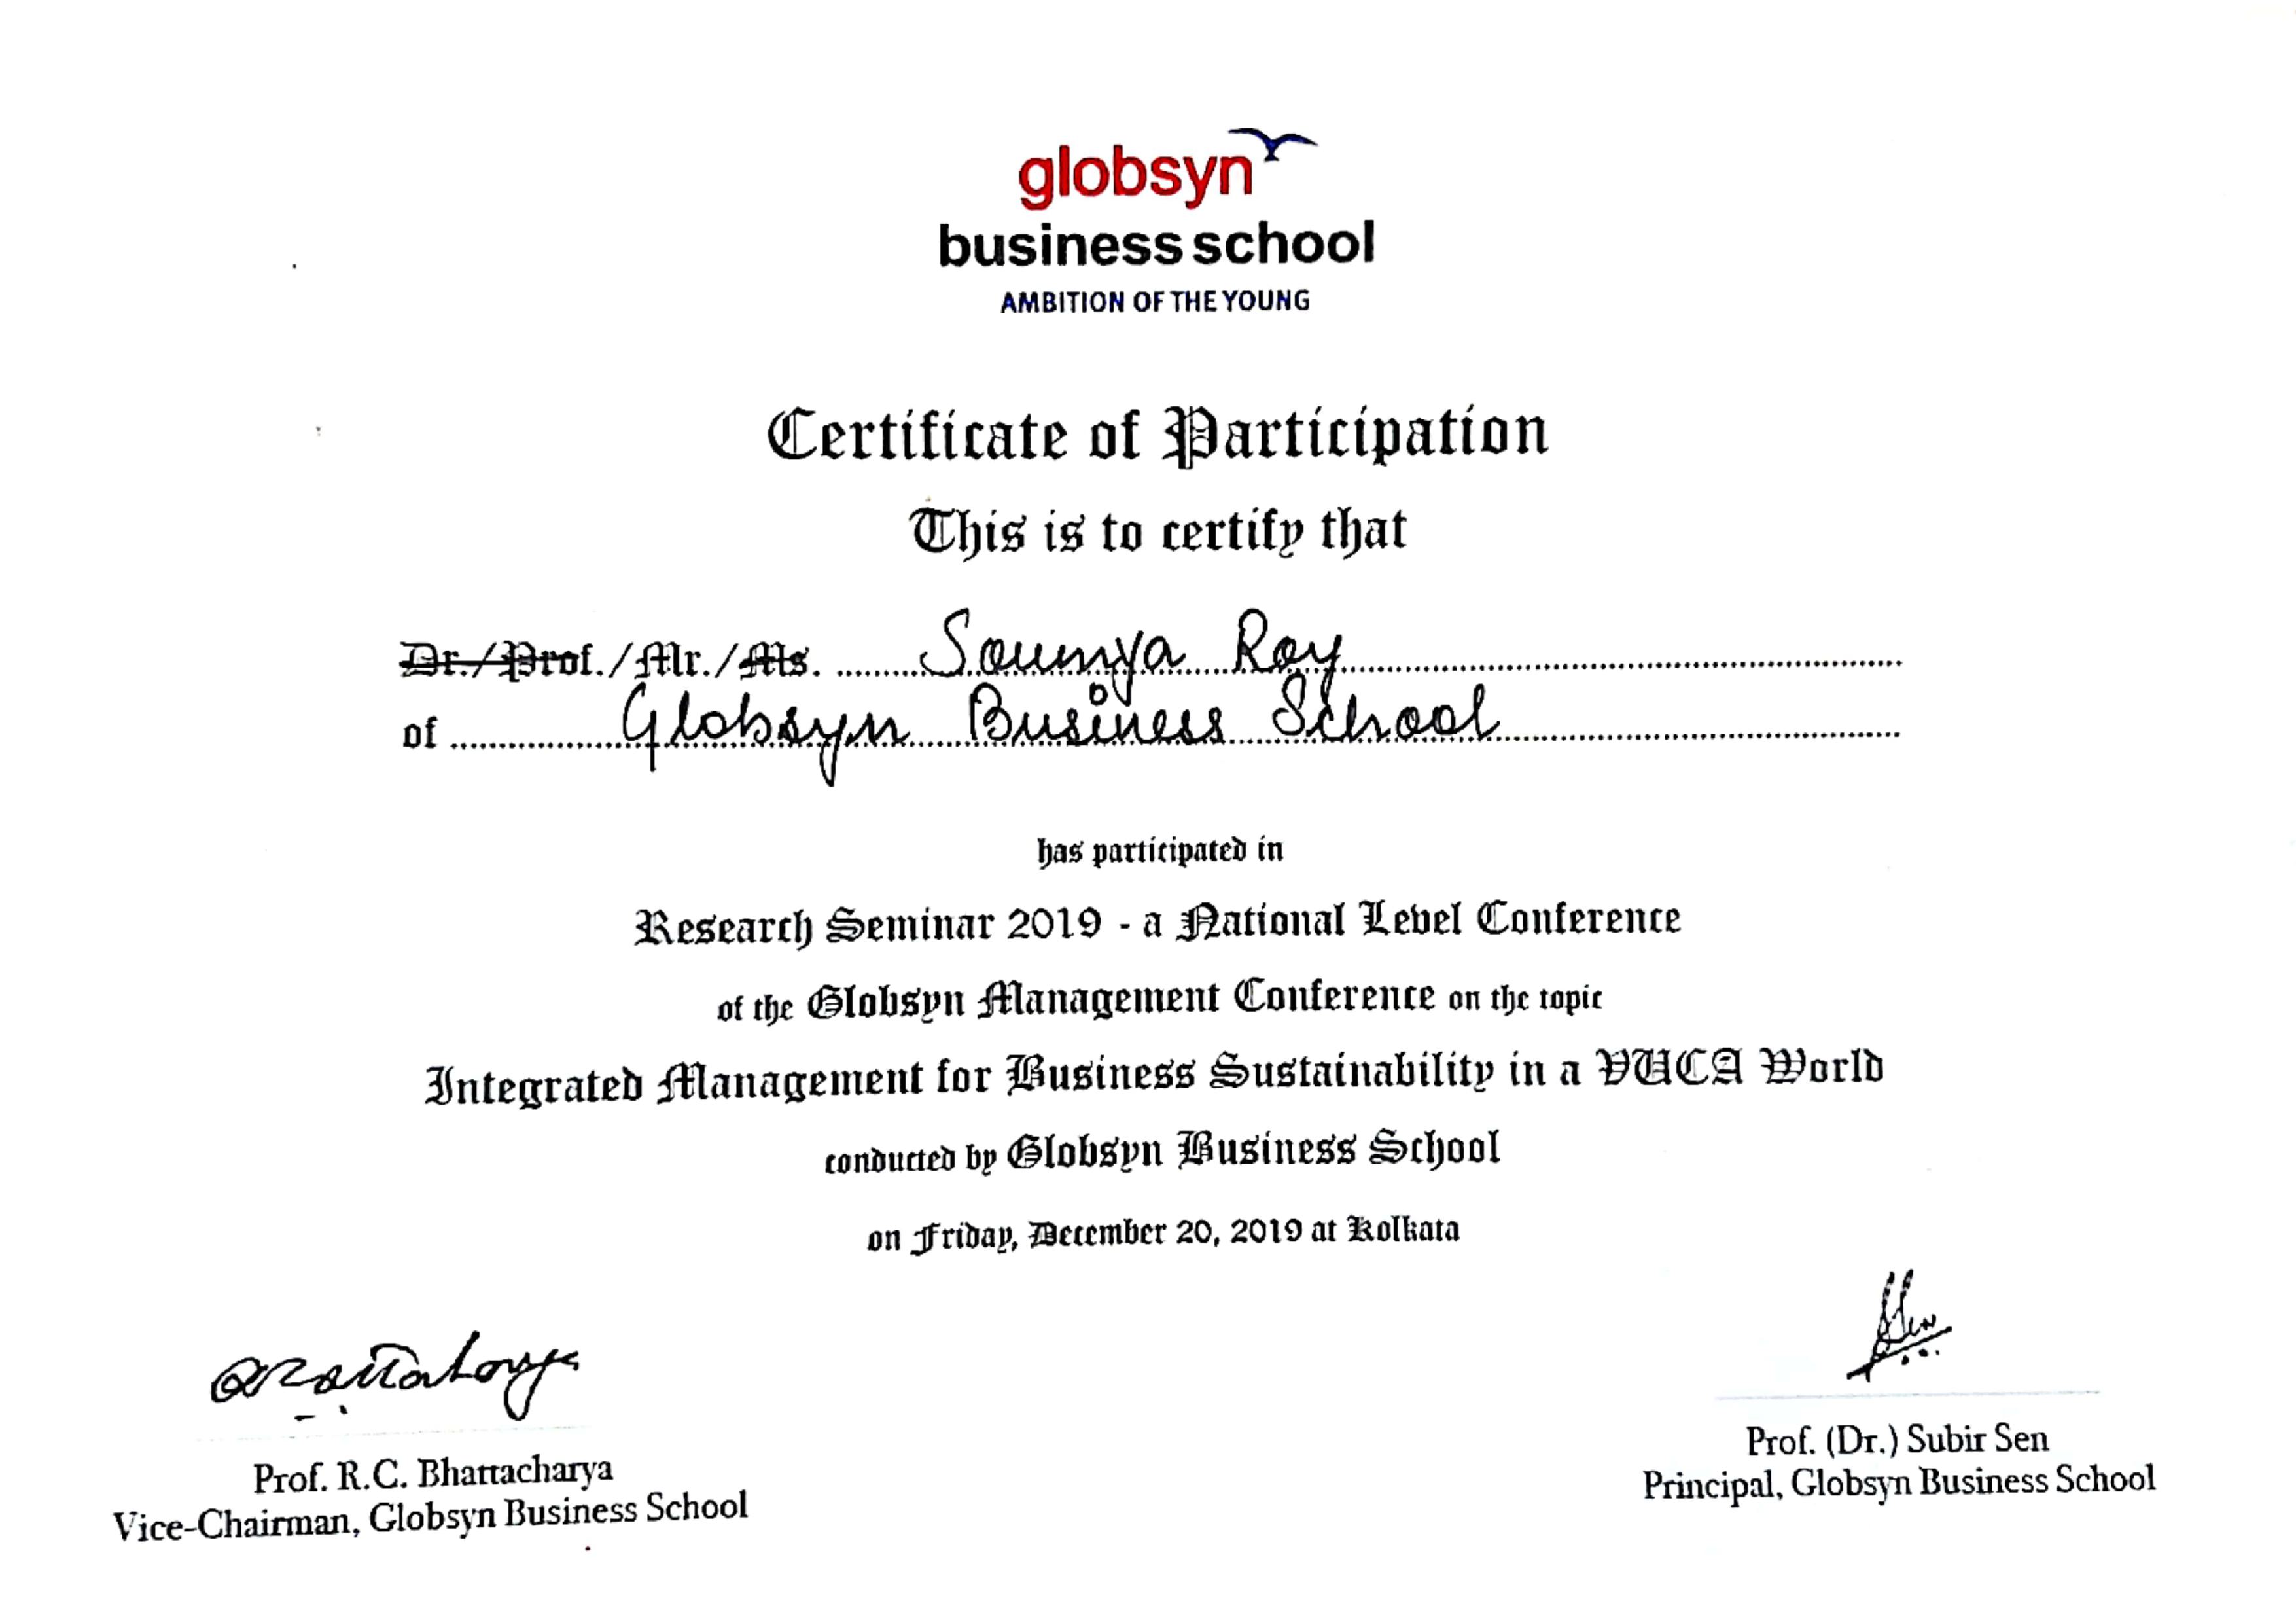 globsyn
business school
AMBITION OF THE YOUNG
Certificate of Participation
This is to certify that
Dr./Prof./Mr./Ms. Soumya Roy
of Globsyn Business School
has participated in
Research Seminar 2019 - a National Level Conference
of the Globsyn Management Conference on the topic
Integrated Management for Business Sustainability in a VUCA World
conducted by Globsyn Business School
on Friday, December 20, 2019 at Kolkata
Prof. R.C. Bhattacharya
Vice-Chairman, Globsyn Business School
Prof. (Dr.) Subir Sen
Principal, Globsyn Business School